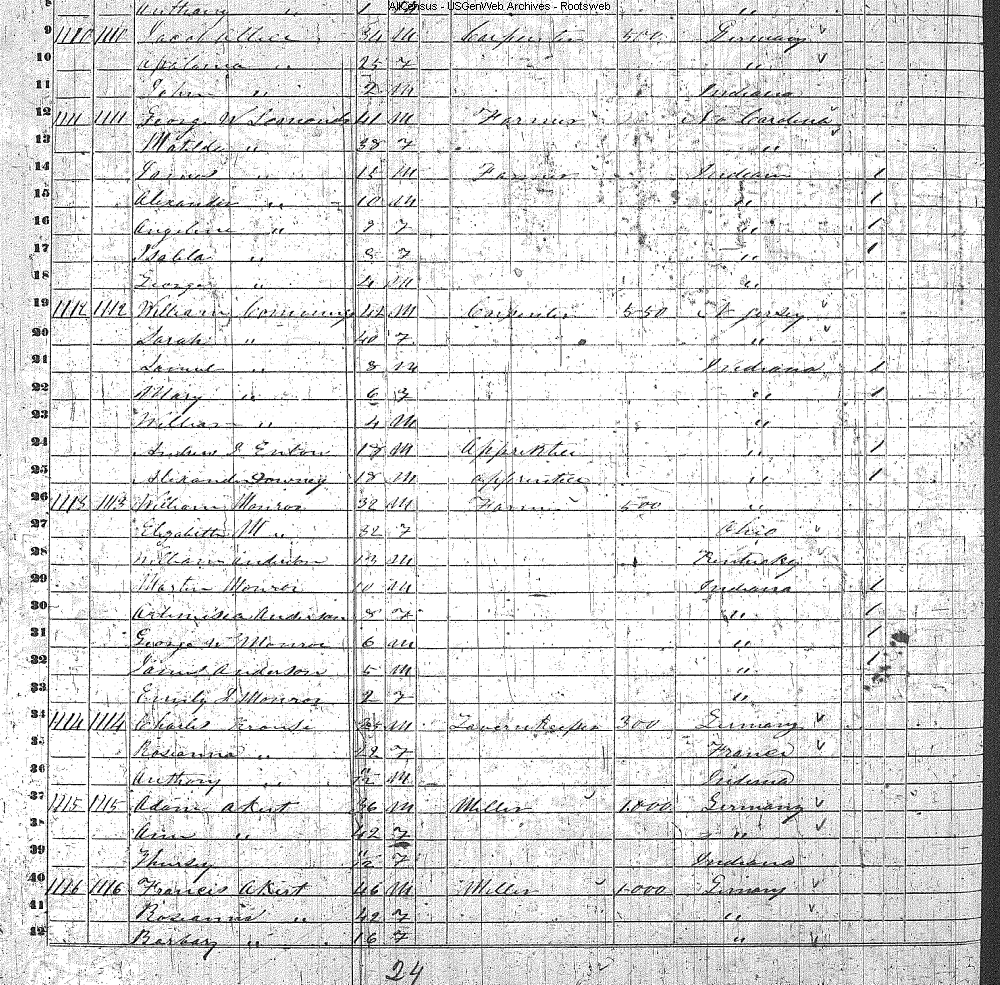 AllCensus - USGenWeb Archives - Rootsweb
Anthony " 1 M "
9 1110 1110 Jacob 34 M Carpenter 500 Germany
10 " 25 F "
11 John " 2 M Indiana
12 1111 1111 George W 41 M Farmer No Carolina
13 Matilda " 38 F "
14 James " M Farmer Indiana 1
15 Alexander " 10 M " 1
16 Angeline " 9 F " 1
17 Isabla " 8 F " 1
18 George " 4 M "
19 1112 1112 William 44 M Carpenter 550 N Jersey
20 Sarah " 40 F "
21 Samuel " 8 M Indiana 1
22 Mary " 6 F " 1
23 William " 4 M "
24 Andrew J Enton 17 M " 1
25 Alexander Downey 18 M apprentice " 1
26 1113 1113 William Monroe 32 M Farmer 500 "
27 Elizabeth M " 32 F Ohio
28 William Anderson 13 M Kentucky
29 Martin Monroe 10 M Indiana 1
30 Artimisea Anderson 8 F " 1
31 George W Monroe 6 M " 1
32 James Anderson 5 M " 1
33 Emily J Monroe 2 F "
34 1114 1114 Charles Krouse 35 M Tavern Keeper 300 Germany
35 Rosianna " 22 F France
36 Anthony " M Indiana
37 1115 1115 Adam Akert 36 M Miller 1000 Germany
38 Ann " 42 F "
39 Thursey F Indiana
40 1116 1116 Francis Akert 46 M Miller 1000 Germany
41 Roseanna " 42 F "
42 Barbary " 16 F "
24